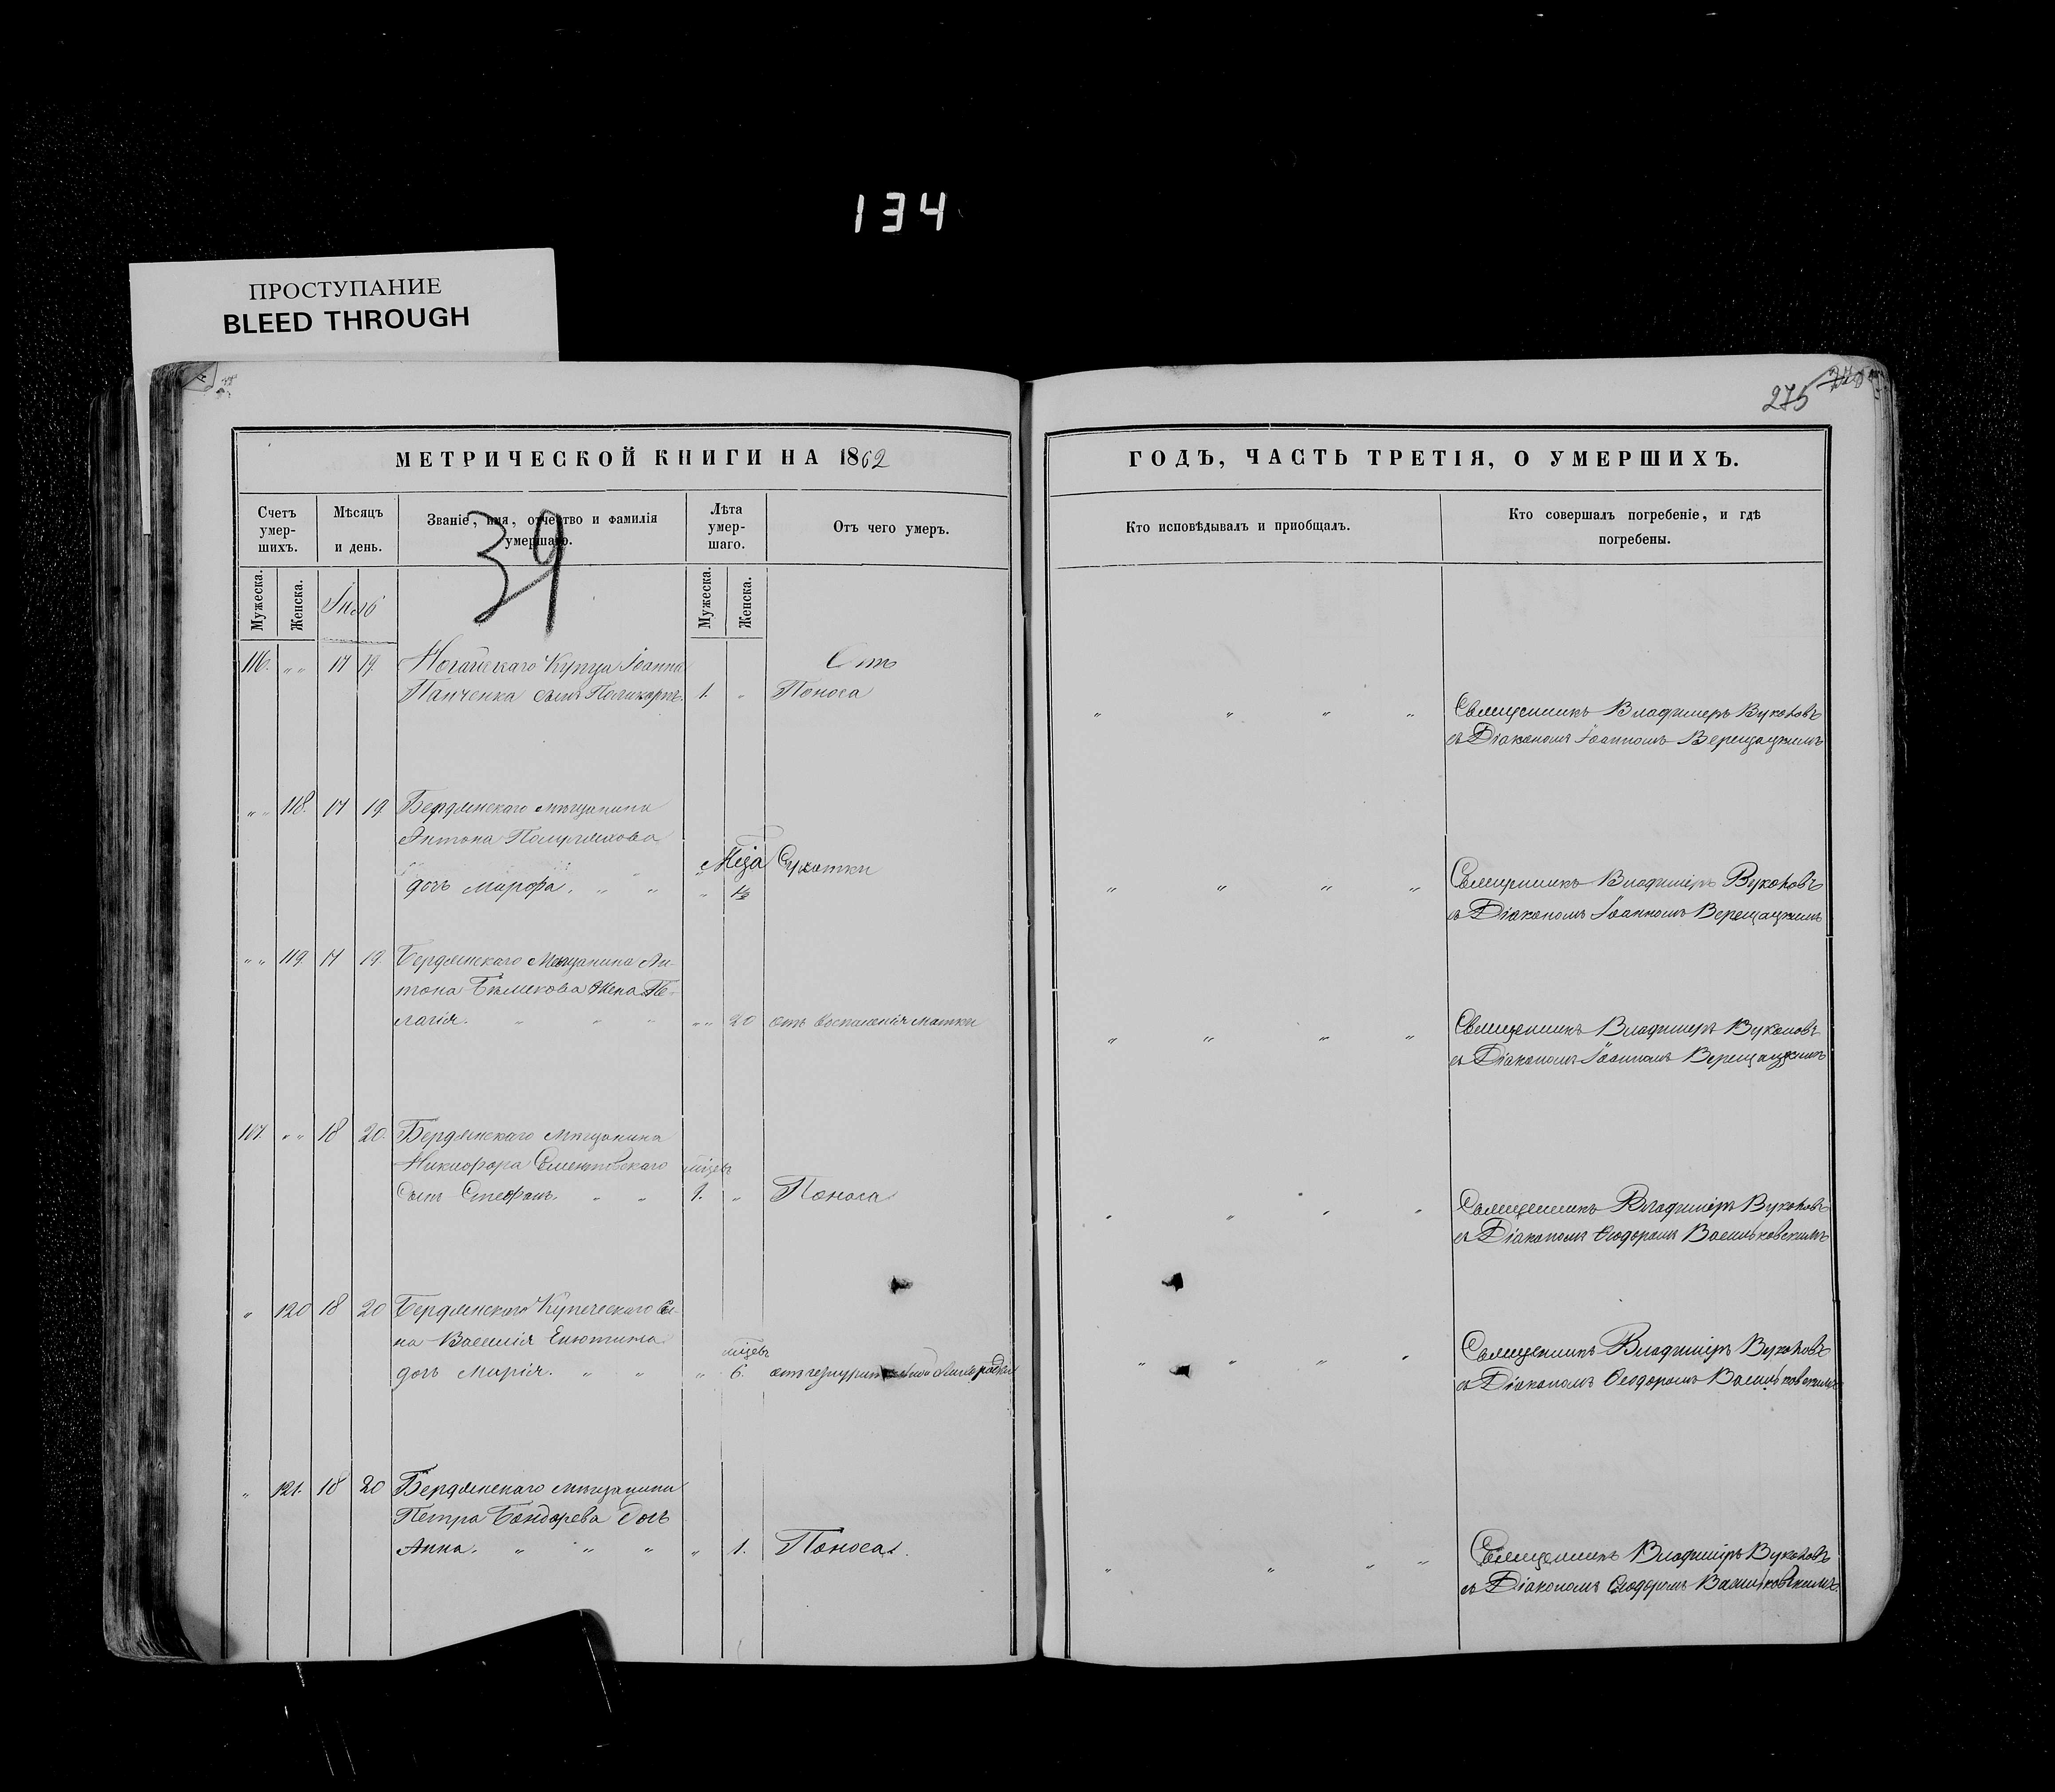 134
ПРОСТУПАНИЕ
BLEED THROUGH
275
МЕТРИЧЕСКОЙ КНИГИ НА 1862
ГОДЪ, ЧАСТЬ ТРЕТІЯ, О УМЕРШИХЪ.
Счетъ умер-шихъ.
Мѣсяцъ и день.
Званіе, имя, отчество и фамилія умершаго.
Лѣта умер-шаго.
Отъ чего умеръ.
Кто исповѣдывалъ и приобщалъ.
Кто совершалъ погребеніе, и гдѣ погребены.
Мужеска.
Женска.
39
Мужеска.
Женска.
116. " " 17 19 Ногайскаго Купца Іоанна Отъ
Панченка сынъ Поликарпъ. 1. " Поноса
" " " " Священникъ Владимиръ Вуковъ
съ Діакономъ Іоанномъ Верещацкимъ
" " 118. 17 19 Бердянскаго мѣщанина
Антона
дочь Марфа. " " Сухотки
" " " " Священникъ Владиміръ Вуковъ
съ Діакономъ Іоанномъ Верещацкимъ
" " 119. 17 19. Бердянскаго Мѣщанина Ан-
тона Жена Пе-
лагія. " " " " " 20 отъ воспаленія матки
" " " " Священникъ Владимиръ Вуковъ
съ Діакономъ Іоанномъ Верещацкимъ
117. " " 18 20. Бердянскаго мѣщанина
Никифора мѣцевъ
Сынъ Стефанъ. " " 1. " Поноса
" " " " Священникъ Владиміръ Вуковъ
съ Діакономъ Ѳеодоромъ Васильковскимъ
" 120 18 20 Бердянскаго Купеческаго Сы-
на Василія Енютина мѣцевъ
дочь Марія. " " " 6. отъ
" " " " Священникъ Владиміръ Вуковъ
съ Діакономъ Ѳеодоромъ Васильковскимъ
" 121. 18 20 Бердянскаго мѣщанина
Петра Бондарева дочь
Анна. " " " " 1. Поноса.
" " " " Священникъ Владиміръ Вуковъ
съ Діакономъ Ѳеодоромъ Васильковскимъ.